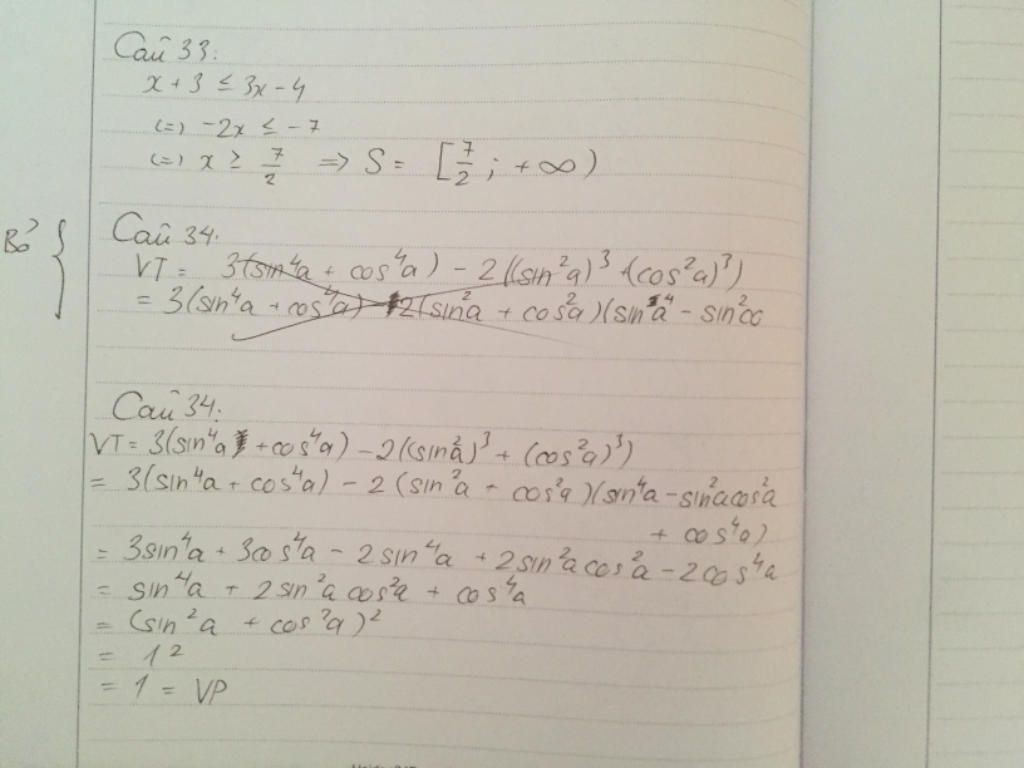 Câu 33:
x + 3 ≤ 3x - 4
(=) -2x ≤ -7
(=) x ≥ 7/2 => S = [7/2; +∞)
Bỏ {
Câu 34.
VT = 3(sin⁴a + cos⁴a) - 2((sin²a)³ + (cos²a)³)
= 3(sin⁴a + cos⁴a) - 2(sin²a + cos²a)(sin⁴a - sin²co
Câu 34:
VT = 3(sin⁴a + cos⁴a) - 2((sin²a)³ + (cos²a)³)
= 3(sin⁴a + cos⁴a) - 2(sin²a + cos²a)(sin⁴a - sin²acos²a
+ cos⁴a)
= 3sin⁴a + 3cos⁴a - 2sin⁴a + 2sin²a cos²a - 2cos⁴a
= sin⁴a + 2sin²a cos²a + cos⁴a
= (sin²a + cos²a)²
= 1²
= 1 = VP